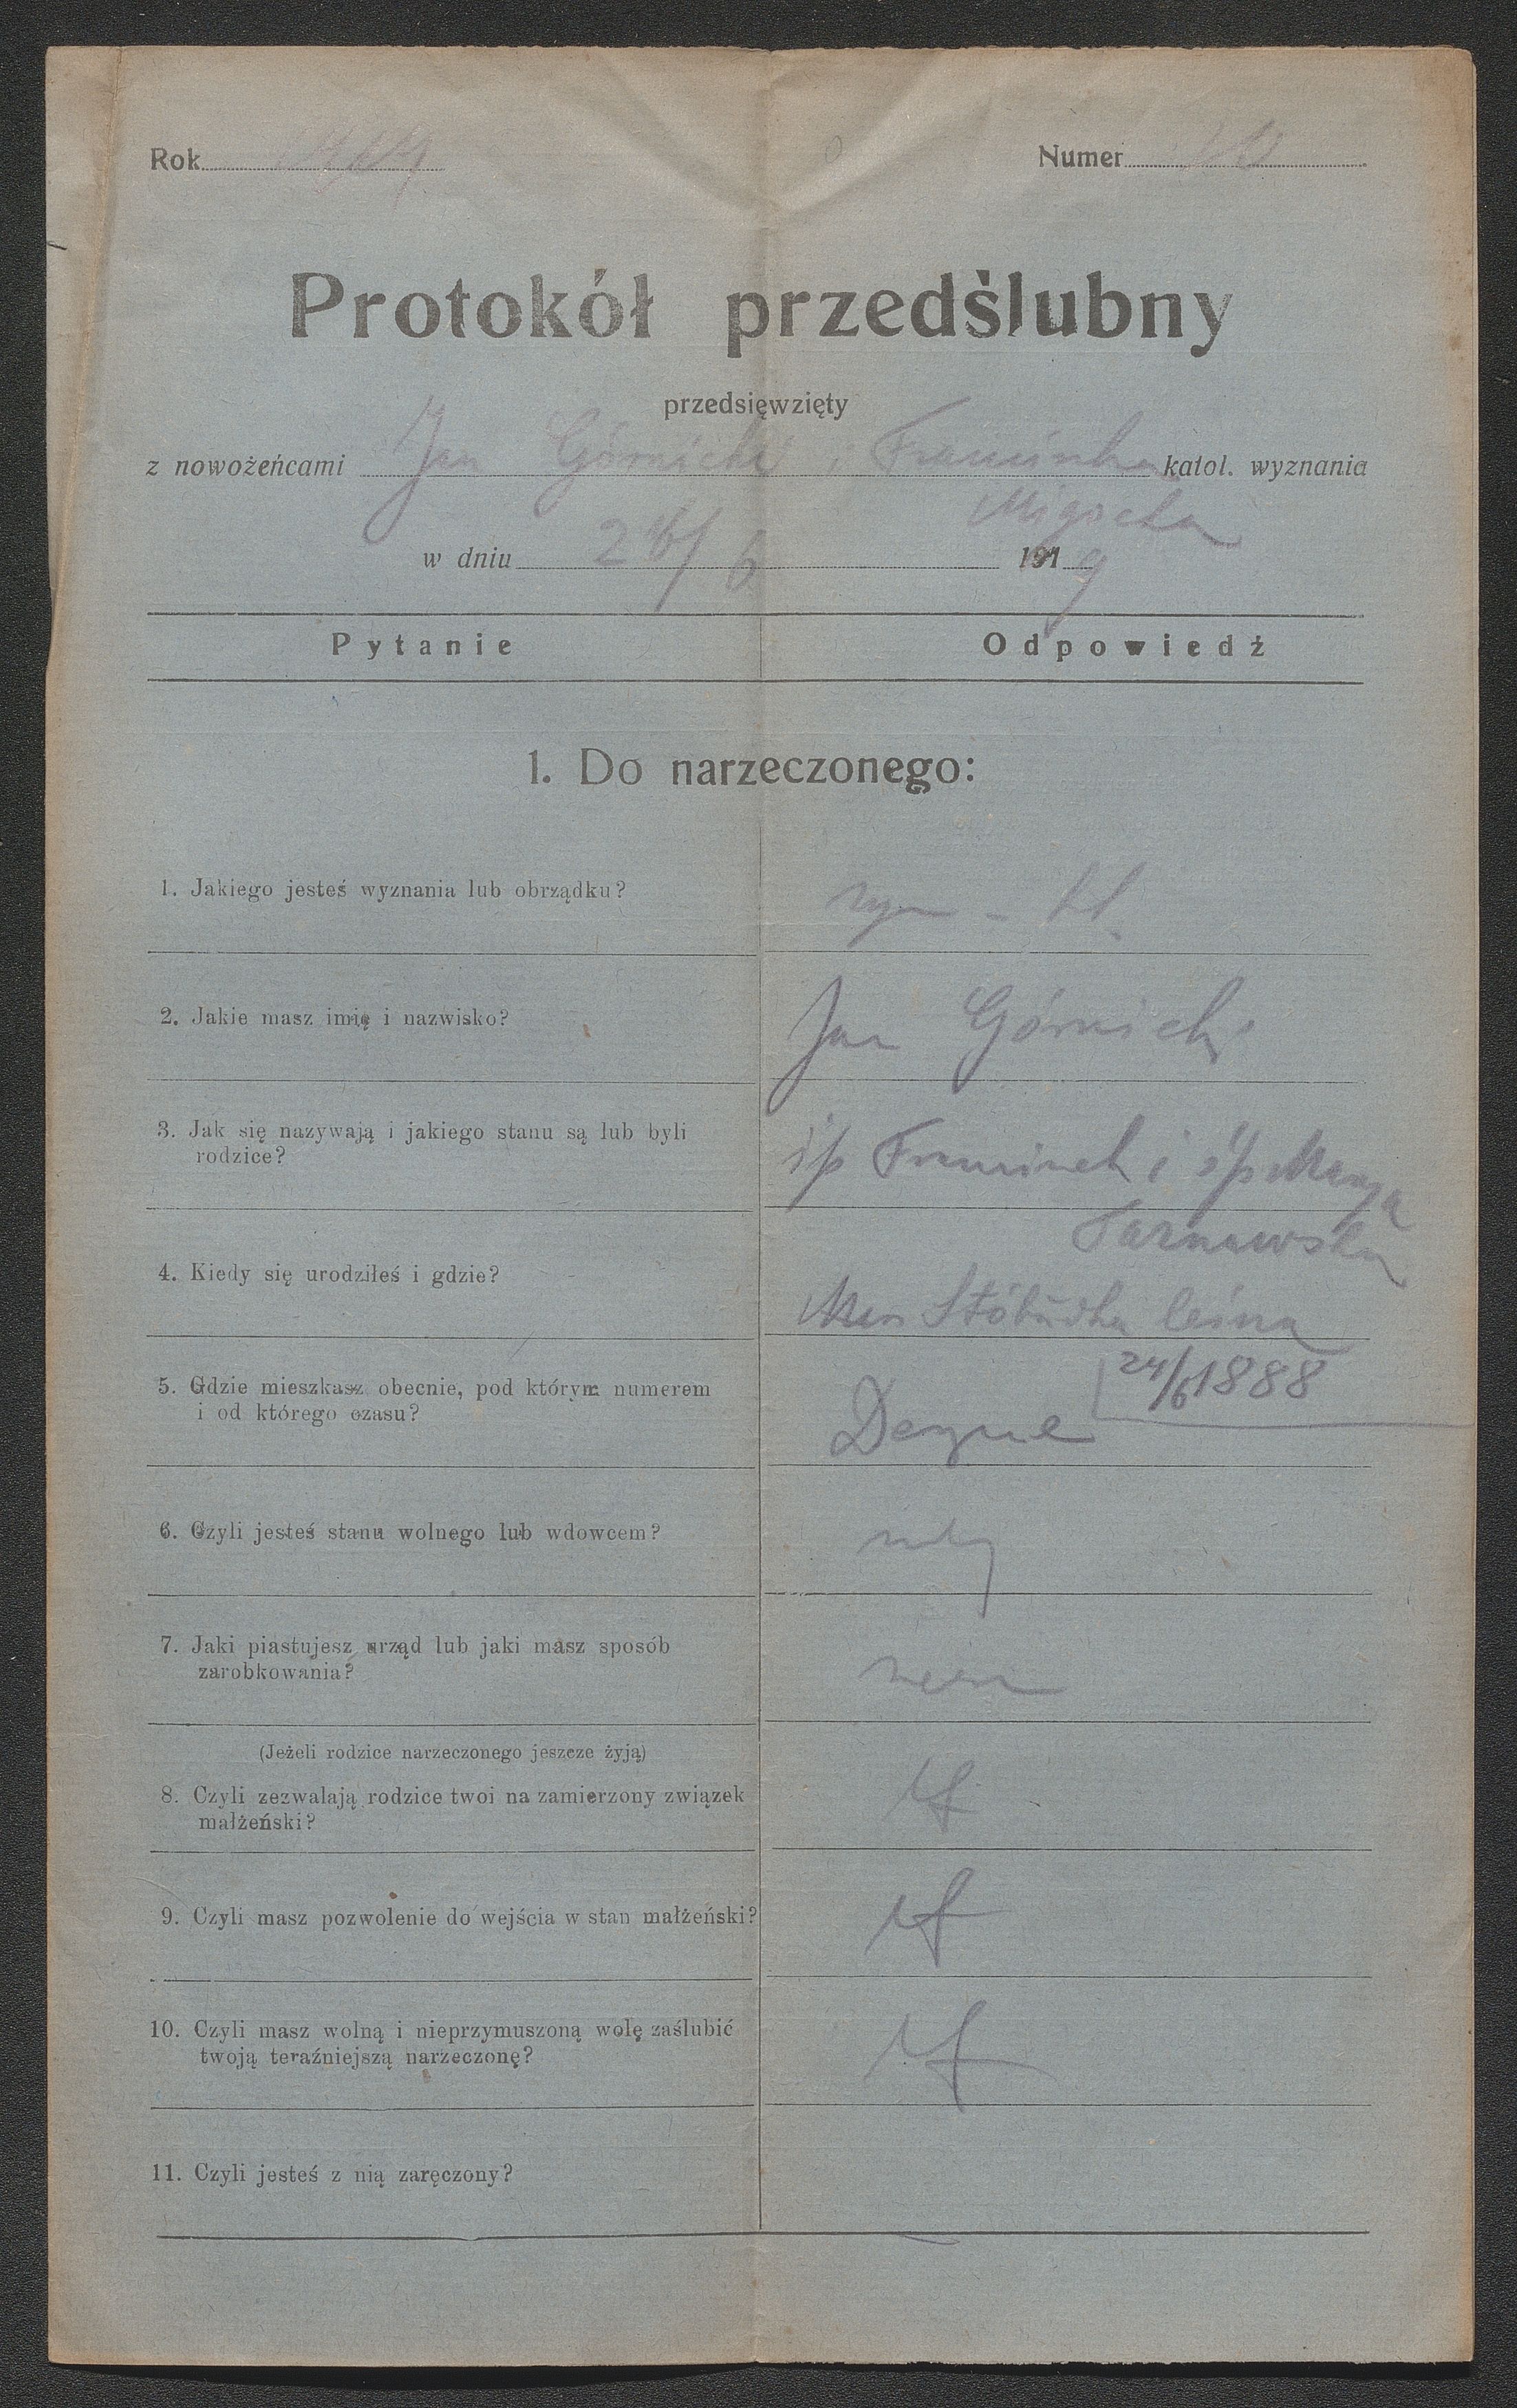 Rok 1919 Numer
Protokół przedślubny
przedsięwzięty
z nowożeńcami Jan Górnicki i Franciszka katol. wyznania
Migocka
w dniu 26/6 1919
Pytanie Odpowiedź
1. Do narzeczonego:
1. Jakiego jesteś wyznania lub obrządku? rzym - kt.
2. Jakie masz imię i nazwisko? Jan Górnicki
3. Jak się nazywają i jakiego stanu są lub byli
rodzice? śp Franciszek i śp Marya
Tarnawska
4. Kiedy się urodziłeś i gdzie?
leśna
24/6 1888
5. Gdzie mieszkasz obecnie, pod którym numerem
i od którego czasu?
6. Czyli jesteś stanu wolnego lub wdowcem? wolny
7. Jaki piastujesz urząd lub jaki masz sposób
zarobkowania?
(Jeżeli rodzice narzeczonego jeszcze żyją)
8. Czyli zezwalają rodzice twoi na zamierzony związek
małżeński?
9. Czyli masz pozwolenie do wejścia w stan małżeński?
10. Czyli masz wolną i nieprzymuszoną wolę zaślubić
twoją teraźniejszą narzeczonę?
11. Czyli jesteś z nią zaręczony?